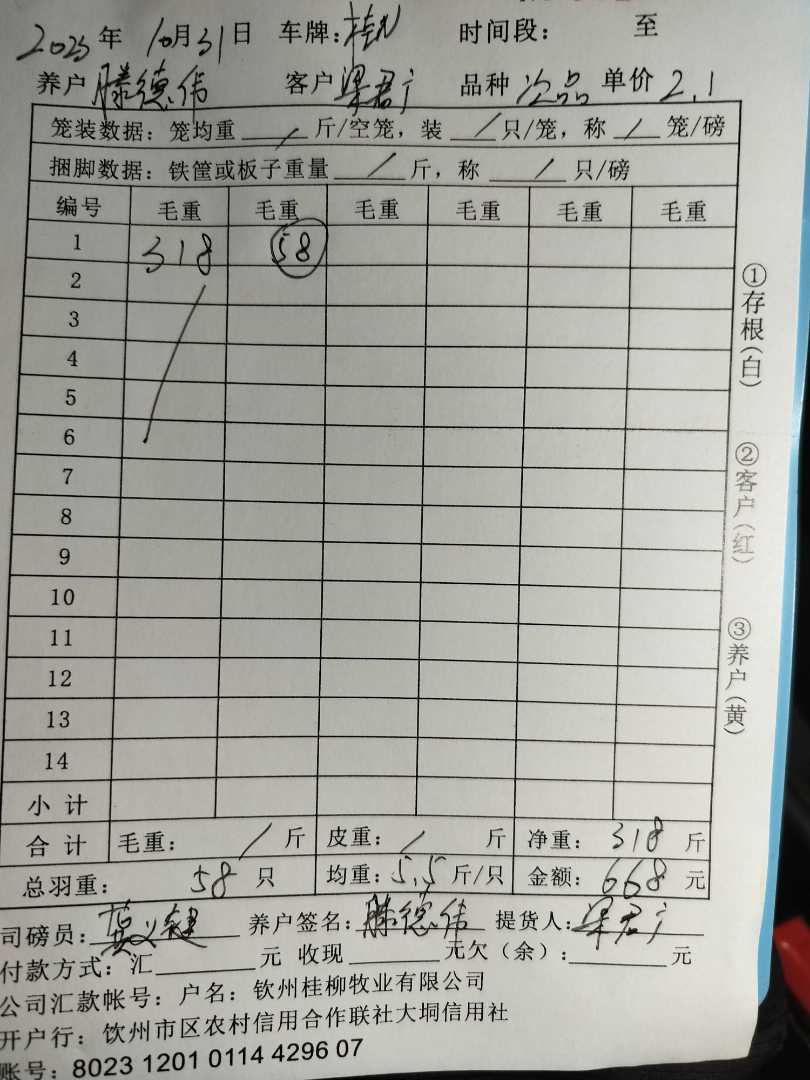 2025年 10月31日 车牌: 桂N 时间段: 至
养户 滕德伟 客户 梁君广 品种 次品 单价 2.1
笼装数据: 笼均重 / 斤/空笼, 装 / 只/笼, 称 / 笼/磅
捆脚数据: 铁筐或板子重量 / 斤, 称 / 只/磅
编号 毛重 毛重 毛重 毛重 毛重 毛重
1 318 58
2
3
4
5
6
7
8
9
10
11
12
13
14
小计
合计 毛重: / 斤 皮重: / 斤 净重: 318 斤
总羽重: 58 只 均重: 5.5 斤/只 金额: 668 元
司磅员: 养户签名: 滕德伟 提货人: 梁君广
付款方式: 汇 元 收现 元欠(余): 元
公司汇款帐号: 户名: 钦州桂柳牧业有限公司
开户行: 钦州市区农村信用合作联社大垌信用社
账号: 8023 1201 0114 4296 07
①存根(白)
②客户(红)
③养户(黄)